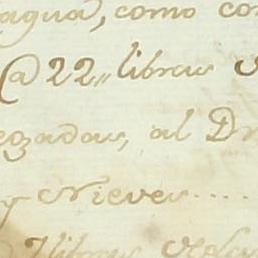 agua, como co
@ 22,, libras
egadas, al Dr
y Nieves.....
libras